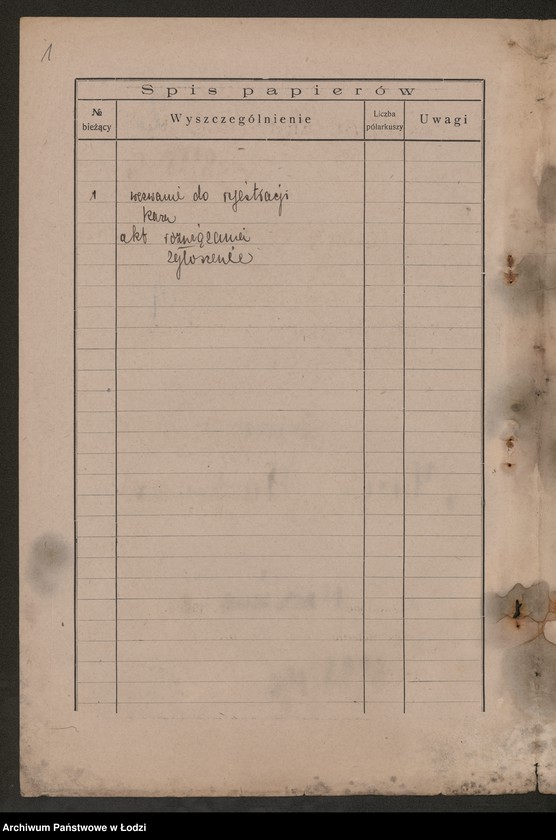 1
Spis papierów
№ bieżący
Wyszczególnienie
Liczba półarkuszy
Uwagi
1 wezwanie do rejestracji
kara
akt rozwiązania
zgłoszenie
Archiwum Państwowe w Łodzi